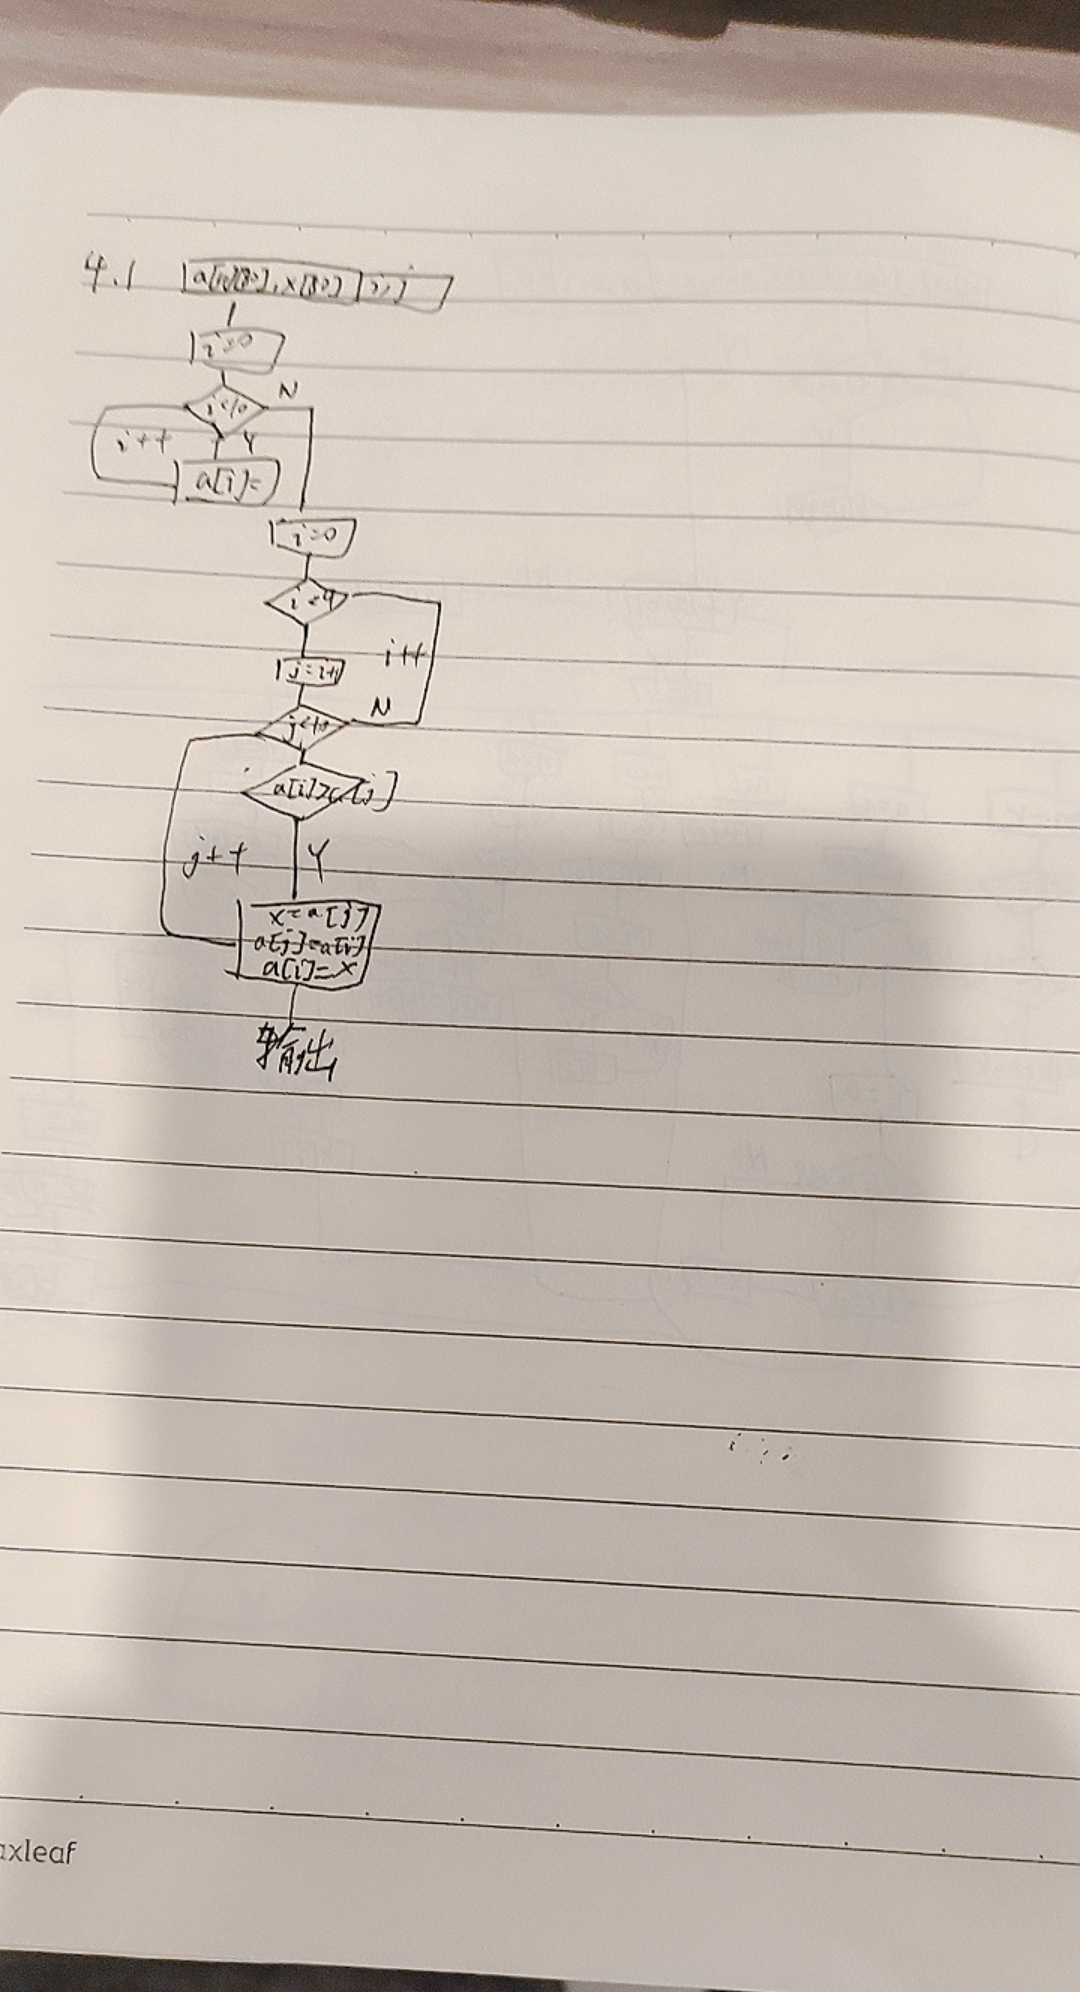 4.1 a[10][80], x[80] i, j
i=0
i<10 N
i++ Y
a[i]=
i=0
i<9
i++
j=i+1
N
j<10
a[i]>a[j]
j++ Y
x=a[j]
a[j]=a[i]
a[i]=x
输出
axleaf